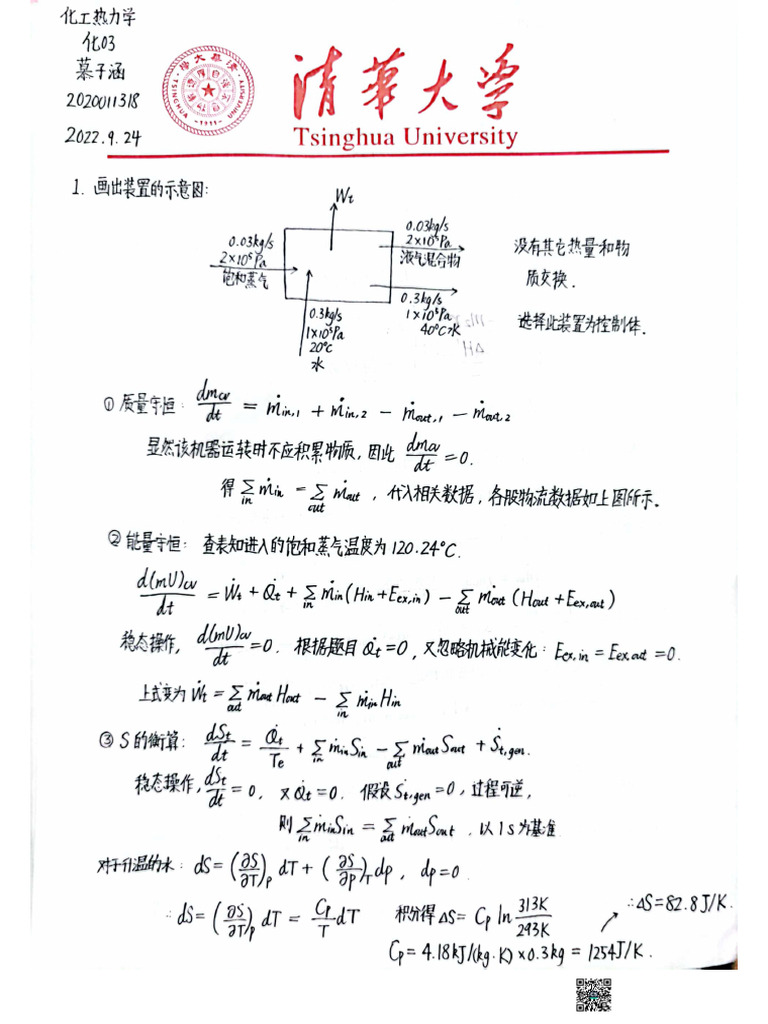 化工热力学
化03
慕子涵
2020011318
2022.9.24
清华大学
Tsinghua University
1. 画出装置的示意图:
Wt
0.03kg/s
2×10⁵Pa
饱和蒸气
0.03kg/s
2×10⁵Pa
液气混合物
0.3kg/s
1×10⁵Pa
20℃
水
0.3kg/s
1×10⁵Pa
40℃水
没有其它热量和物
质交换.
选择此装置为控制体.
① 质量守恒: dm_cv/dt = ṁin,1 + ṁin,2 − ṁout,1 − ṁout,2
显然该机器运转时不应积累物质,因此 dm_cv/dt = 0.
得 Σ_in ṁin = Σ_out ṁout , 代入相关数据, 各股物流数据如上图所示.
② 能量守恒: 查表知进入的饱和蒸气温度为120.24℃.
d(mU)cv/dt = Ẇt + Q̇t + Σ_in ṁin(Hin+Eex,in) − Σ_out ṁout(Hout+Eex,out)
稳态操作, d(mU)cv/dt = 0. 根据题目 Q̇t=0, 又忽略机械能变化: Eex,in = Eex,out = 0.
上式变为 Ẇt = Σ_out ṁout Hout − Σ_in ṁin Hin
③ S的衡算: dSt/dt = Q̇t/Te + Σ_in ṁin Sin − Σ_out ṁout Sout + Ṡt,gen.
稳态操作, dSt/dt = 0, 又Q̇t=0. 假设Ṡt,gen=0, 过程可逆,
则 Σ_in ṁin Sin = Σ_out ṁout Sout, 以1s为基准
对于升温的水: dS = (∂S/∂T)p dT + (∂S/∂p)T dp, dp=0
∴ dS = (∂S/∂T)p dT = Cp/T dT 积分得 ΔS = Cp ln 313K/293K
∴ΔS=82.8J/K.
Cp = 4.18kJ/(kg·K)×0.3kg = 1254J/K.